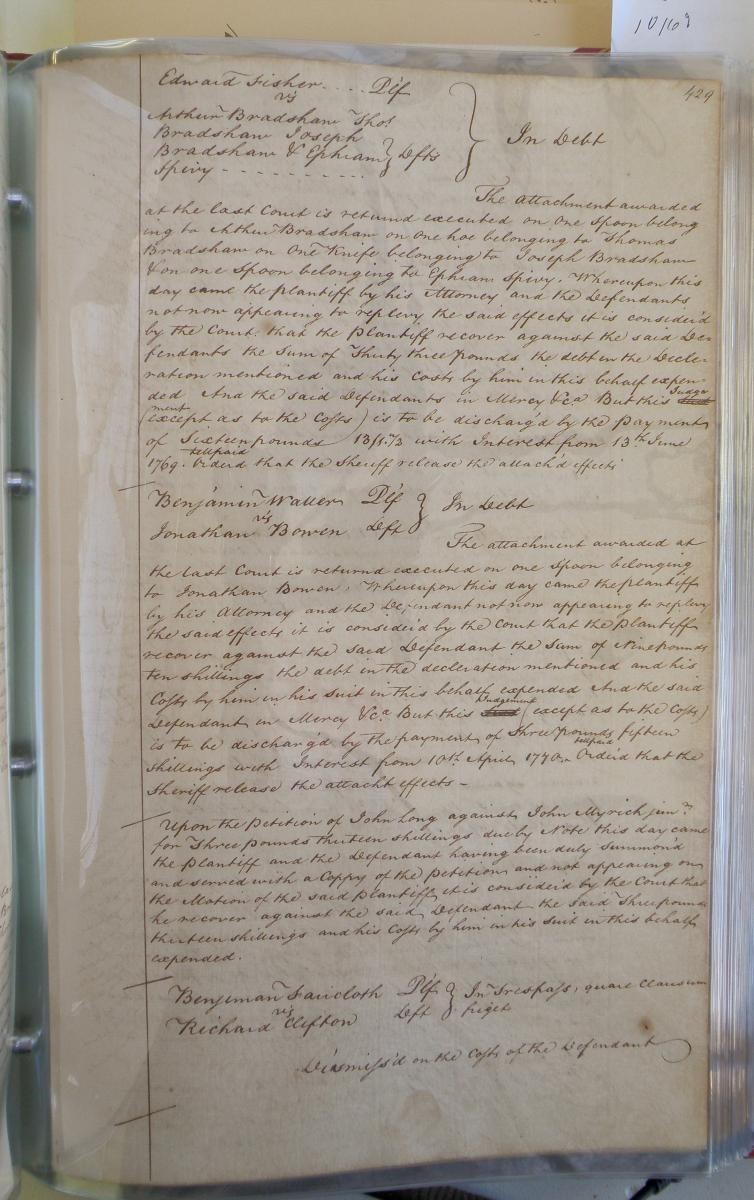 10/63
429
Edward Fisher .... Plf
vs
Arthur Bradshaw Thos.
Bradshaw Joseph
Bradshaw & Ephriam } Defts
Spivy - - - - - - - - - -
In Debt
The attachment awarded
at the last Court is returnd executed on one Spoon belong
ing to Arthur Bradshaw on one hoe belonging to Thomas
Bradshaw on One Knife belonging to Joseph Bradshaw
& on one Spoon belonging to Ephriam Spivy. Whereupon this
day came the plantiff by his Attorney and the Defendants
not now appearing to replevy the said effects it is consider'd
by the Court that the plantiff recover against the said De-
fendants the Sum of Thirty three pounds the debt in the Decle-
ration mentioned and his Costs by him in this behalf expen
ded And the said Defendants in Mercy &ca But this Judge
ment (except as to the Costs) is to be discharg'd by the payment
of Sixteen pounds 13/1.¾ with Interest from 13th June
1769. till paid Orderd that the Sheriff release the attach'd effects
Benjamin Waller Plf
vs
Jonathan Bowen Deft
In Debt
The attachment awarded at
the last Court is returnd executed on one Spoon belonging
to Jonathan Bowen, Whereupon this day came the plantiff
by his Attorney and the Defendant not now appearing to replevy
the said effects it is consider'd by the Court that the Plantiff
recover against the said Defendant the Sum of Nine pounds
ten shillings the debt in the decleration mentioned and his
Costs by him in his suit in this behalf expended And the said
Defendant in Mercy &ca But this Judgement (except as to the Costs)
is to be discharg'd by the payment of three pounds fifteen
shillings with Interest from 10th April 1770 till paid Order'd that the
Sheriff release the attacht effects -
Upon the Petition of John Long against John Myrich junr.
for Three pounds thirteen shillings due by Note this day came
the plantiff and the Defendant having been duly Summond
and served with a Coppy of the petition and not appearing on
the Motion of the said plantiff it is consider'd by the Court that
he recover against the said Defendant the said Three pounds
thirteen shillings and his Costs by him in his suit in this behalf
expended.
Benjeman Faircloth Plf
vs
Richard Clifton Deft
In Trespass, quare Clausum
friget
Dismiss'd on the Costs of the Defendant